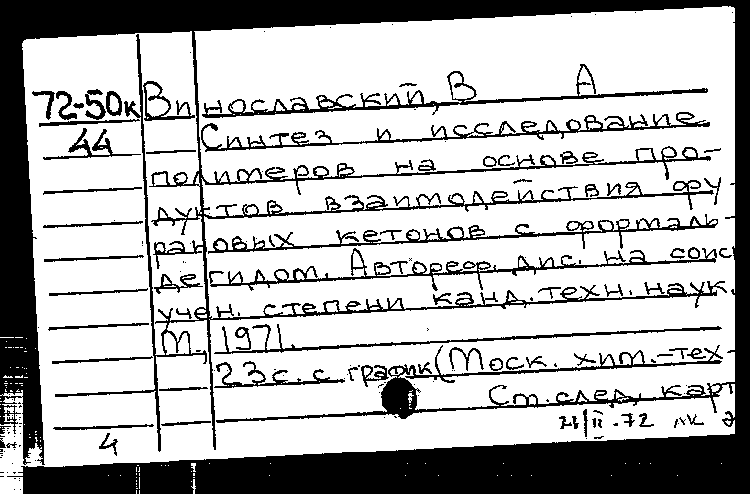 72-50к Винославский, В А
44 Синтез и исследование
полимеров на основе про-
дуктов взаимодействия фу-
рановых кетонов с формаль-
дегидом. Автореф. дис. на соис
учен. степени канд. техн. наук.
М., 1971.
23 с. с график. (Моск. хим.-тех-
Ст. след. карт
21/II.72
4